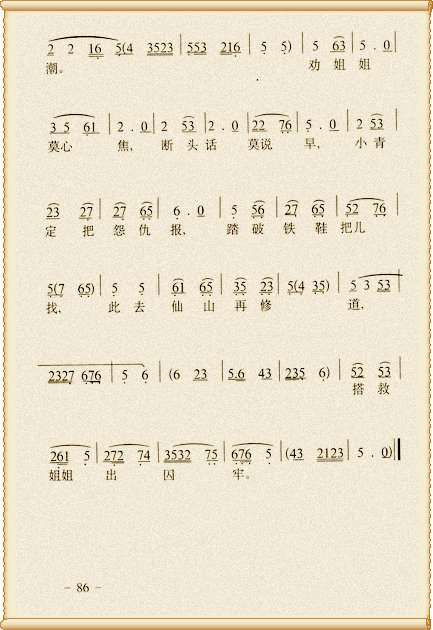 2 2 16 5(4 3523 | 553 216 | 5 5) | 5 63 | 5 . 0 |
潮。 劝 姐 姐
3 5 61 | 2 . 0 | 2 53 | 2 . 0 | 22 76 | 5 . 0 | 2 53 |
莫心 焦, 断 头 话 莫说 早, 小 青
23 27 | 27 65 | 6 . 0 | 5 56 | 27 65 | 52 76 |
定 把 怨 仇 报, 踏 破 铁 鞋 把儿
5(7 65) | 5 5 | 61 65 | 35 23 | 5(4 35) | 5 3 53 |
找, 此 去 仙 山 再 修 道,
2327 676 | 5 6 | (6 23 | 5.6 43 | 235 6) | 52 53 |
搭 救
261 5 | 272 74 | 3532 75 | 676 5 | (43 2123 | 5 . 0) ‖
姐姐 出 囚 牢。
– 86 –